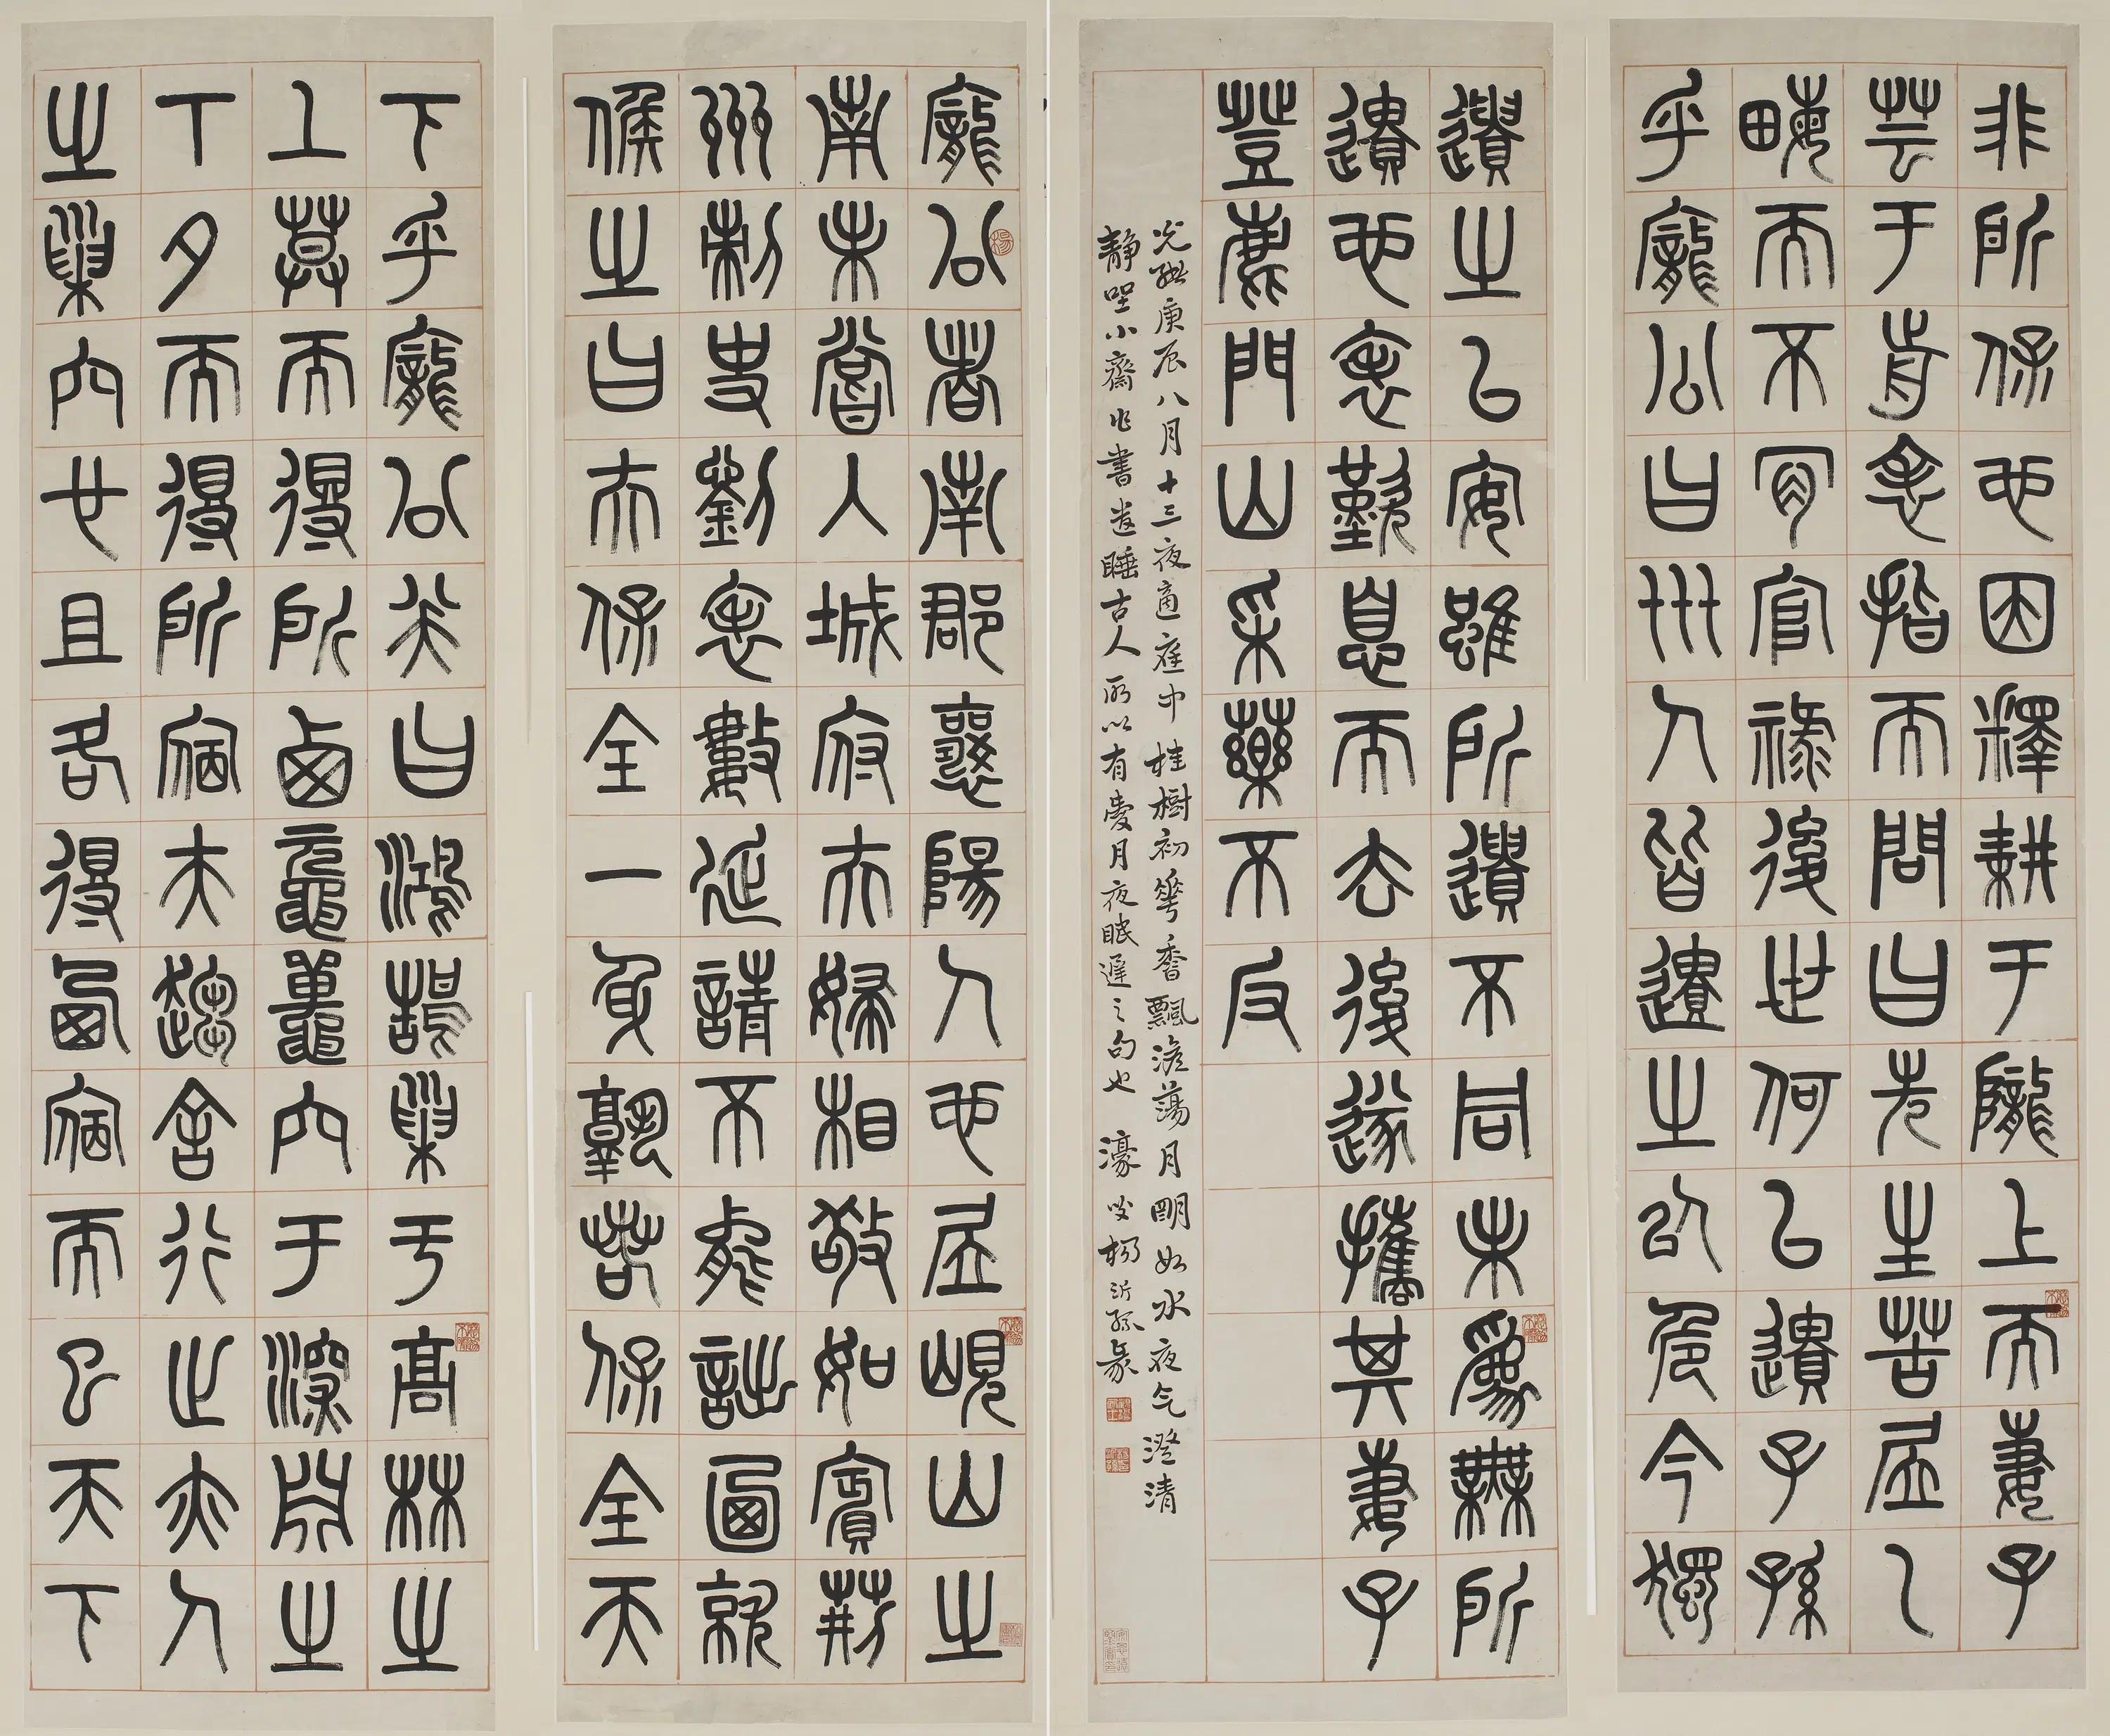 龐公者南郡襄陽人也居峴山之
南未嘗入城府夫婦相敬如賓荊
州刺史劉表數延請不能詘廼就
候之曰夫保全一身孰若保全天
下乎龐公笑曰鴻鵠巢于高林之
上暮而得所栖黿鼉穴于深淵之
下夕而得所宿夫趣舍行止亦人
之巢穴也且各得栖宿而已天下
非所保也因釋耕于隴上而妻子
芸于前表指而問曰先生苦居畎
畮而不肯官祿後世何以遺子孫
乎龐公曰世人皆遺之以危今獨
遺之以安雖所遺不同未為無所
遺也表歎息而去後遂攜其妻子
登鹿門山采藥不反
光緒庚辰八月十三夜適庭中桂樹初華香飄澹蕩月朙如水夜气澄清
靜坐小齋作書遣睡古人所以有愛月夜眠遲之句也 濠叟楊沂孫篆